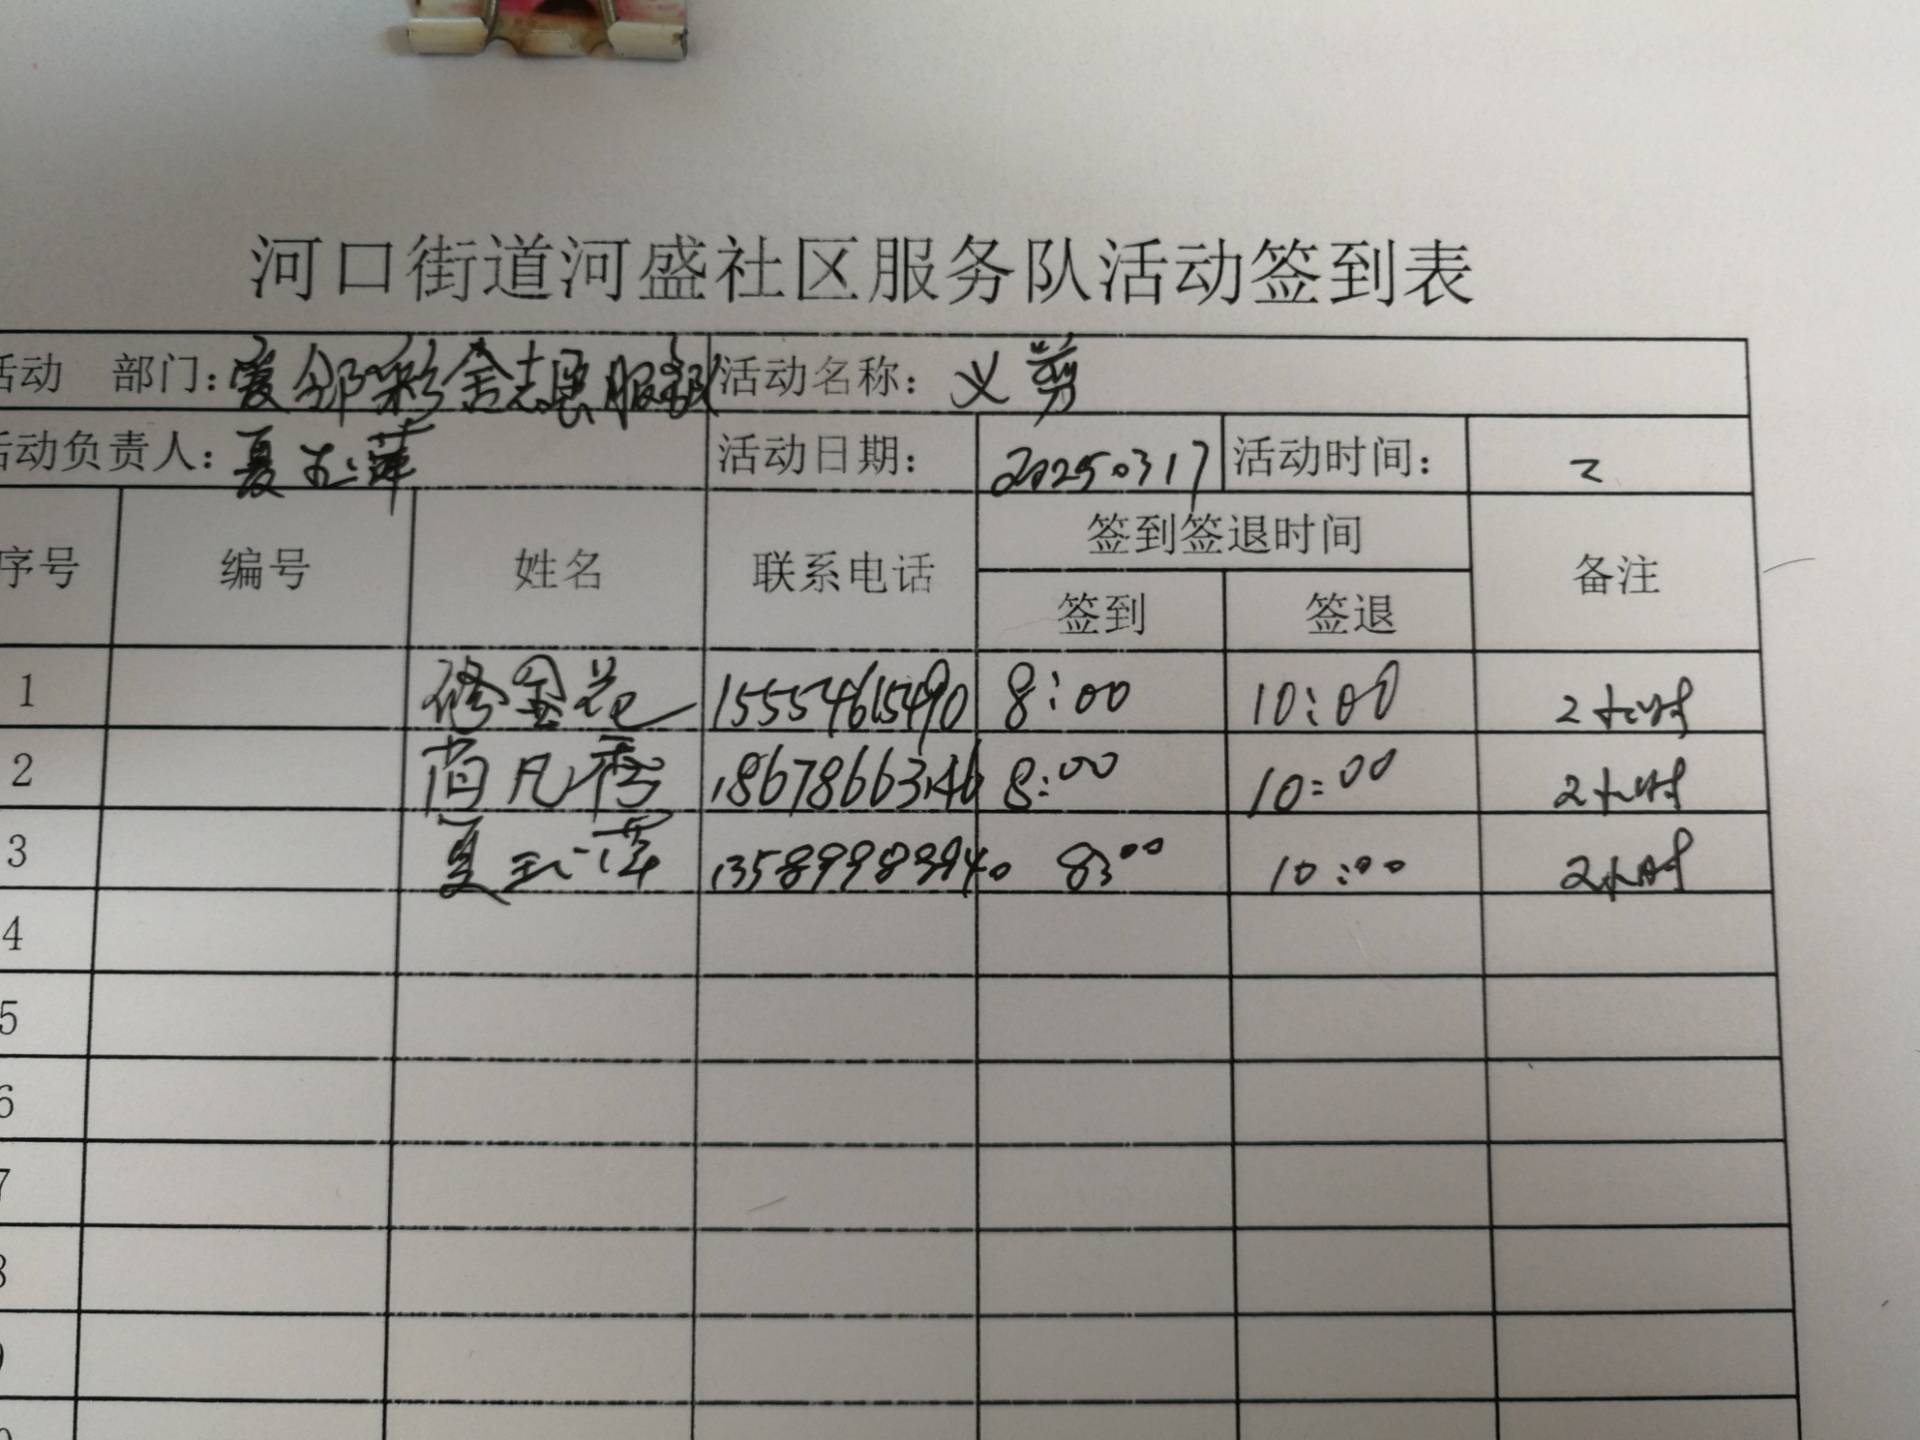 河口街道河盛社区服务队活动签到表
活动 部门：爱邻彩金志愿服务队 活动名称：义剪
活动负责人：夏玉萍 活动日期： 20250317 活动时间： 2
序号 编号 姓名 联系电话 签到签退时间 备注
签到 签退
1 修金花 15554615490 8:00 10:00 2小时
2 尚凡秀 18678663146 8:00 10:00 2小时
3 夏玉萍 13589989940 8:00 10:00 2小时
4
5
6
7
8
9